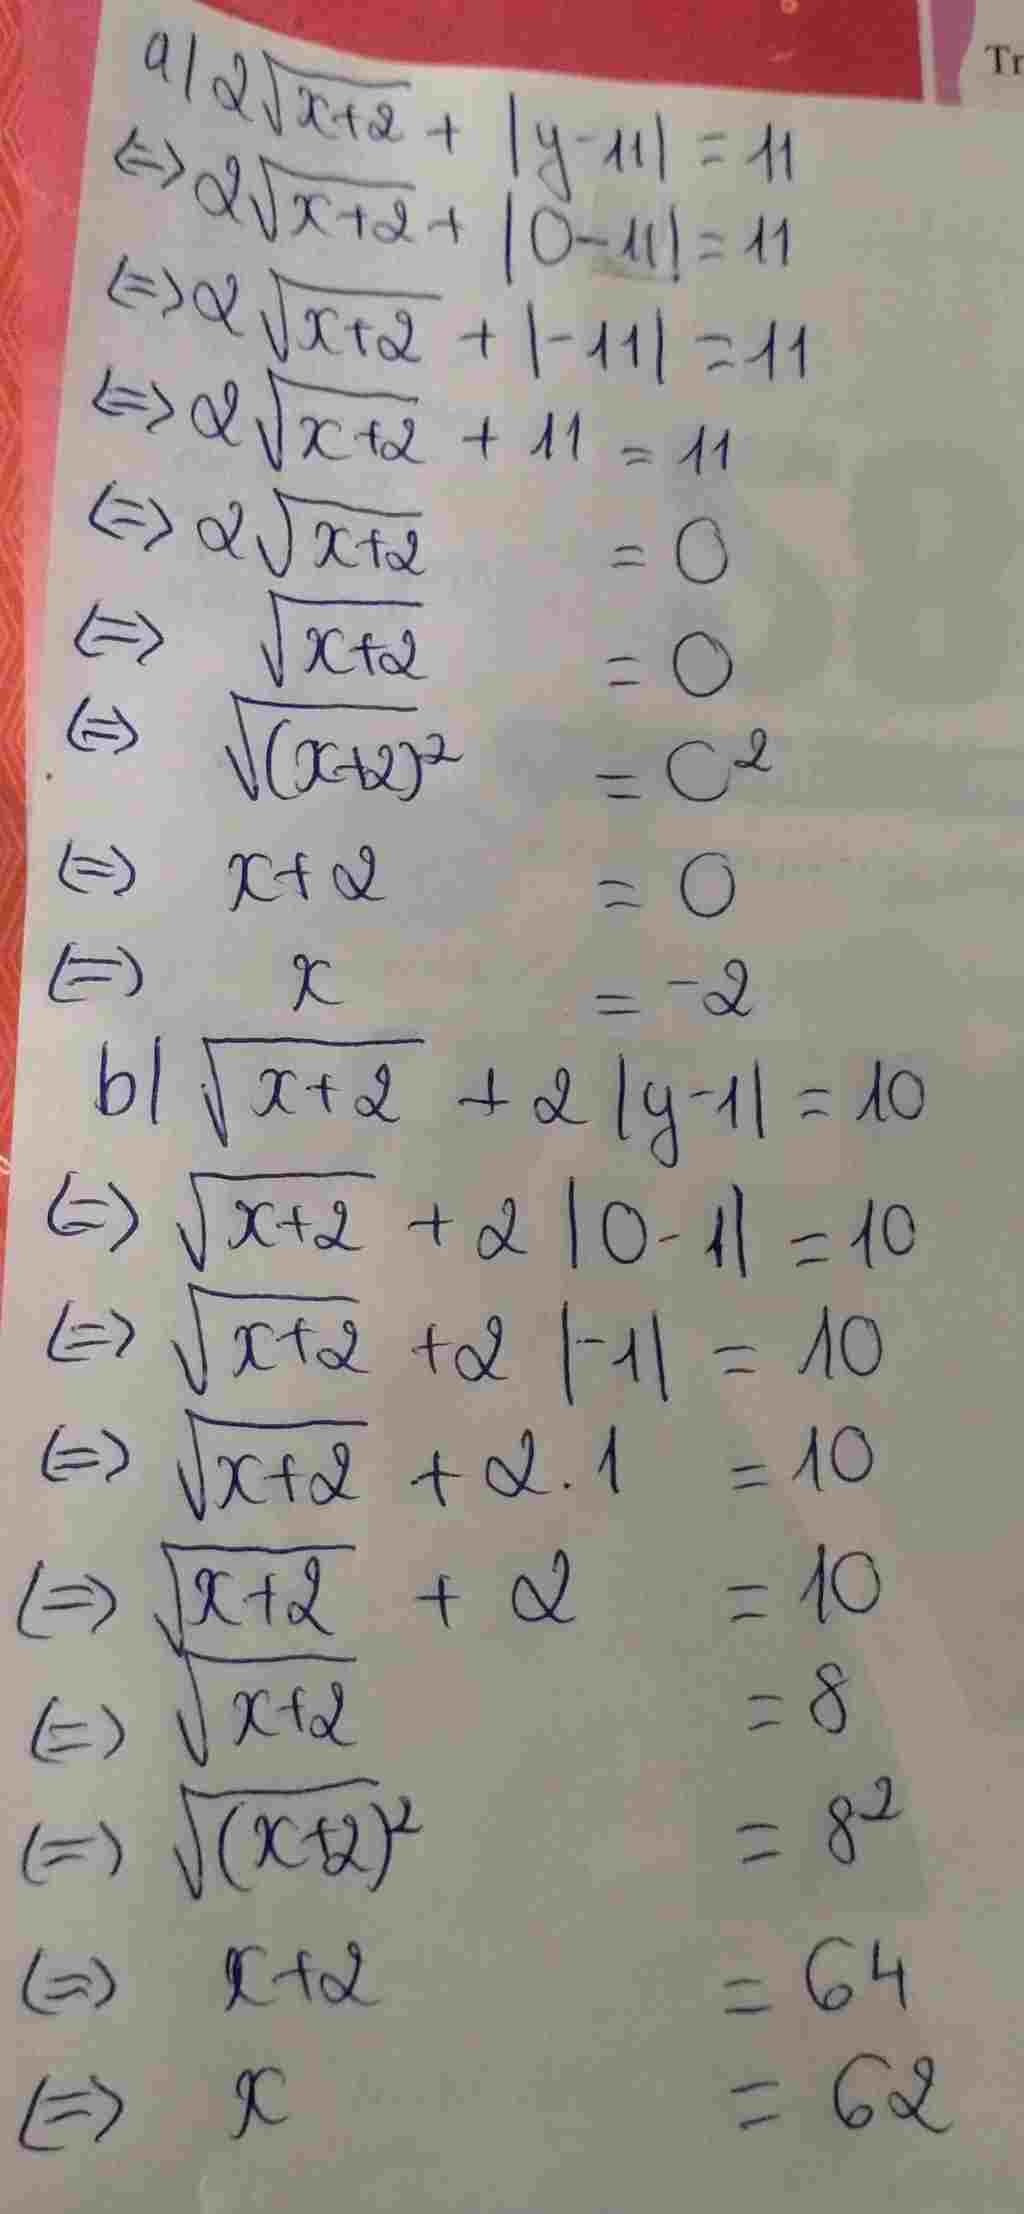 Tr
a) 2√(x+2) + |y-11| = 11
(=) 2√(x+2) + |0-11| = 11
(=) 2√(x+2) + |-11| = 11
(=) 2√(x+2) + 11 = 11
(=) 2√(x+2) = 0
(=) √(x+2) = 0
(=) √(x+2)² = 0²
(=) x+2 = 0
(=) x = -2
b) √(x+2) + 2|y-1| = 10
(=) √(x+2) + 2|0-1| = 10
(=) √(x+2) + 2|-1| = 10
(=) √(x+2) + 2.1 = 10
(=) √(x+2) + 2 = 10
(=) √(x+2) = 8
(=) √(x+2)² = 8²
(=) x+2 = 64
(=) x = 62